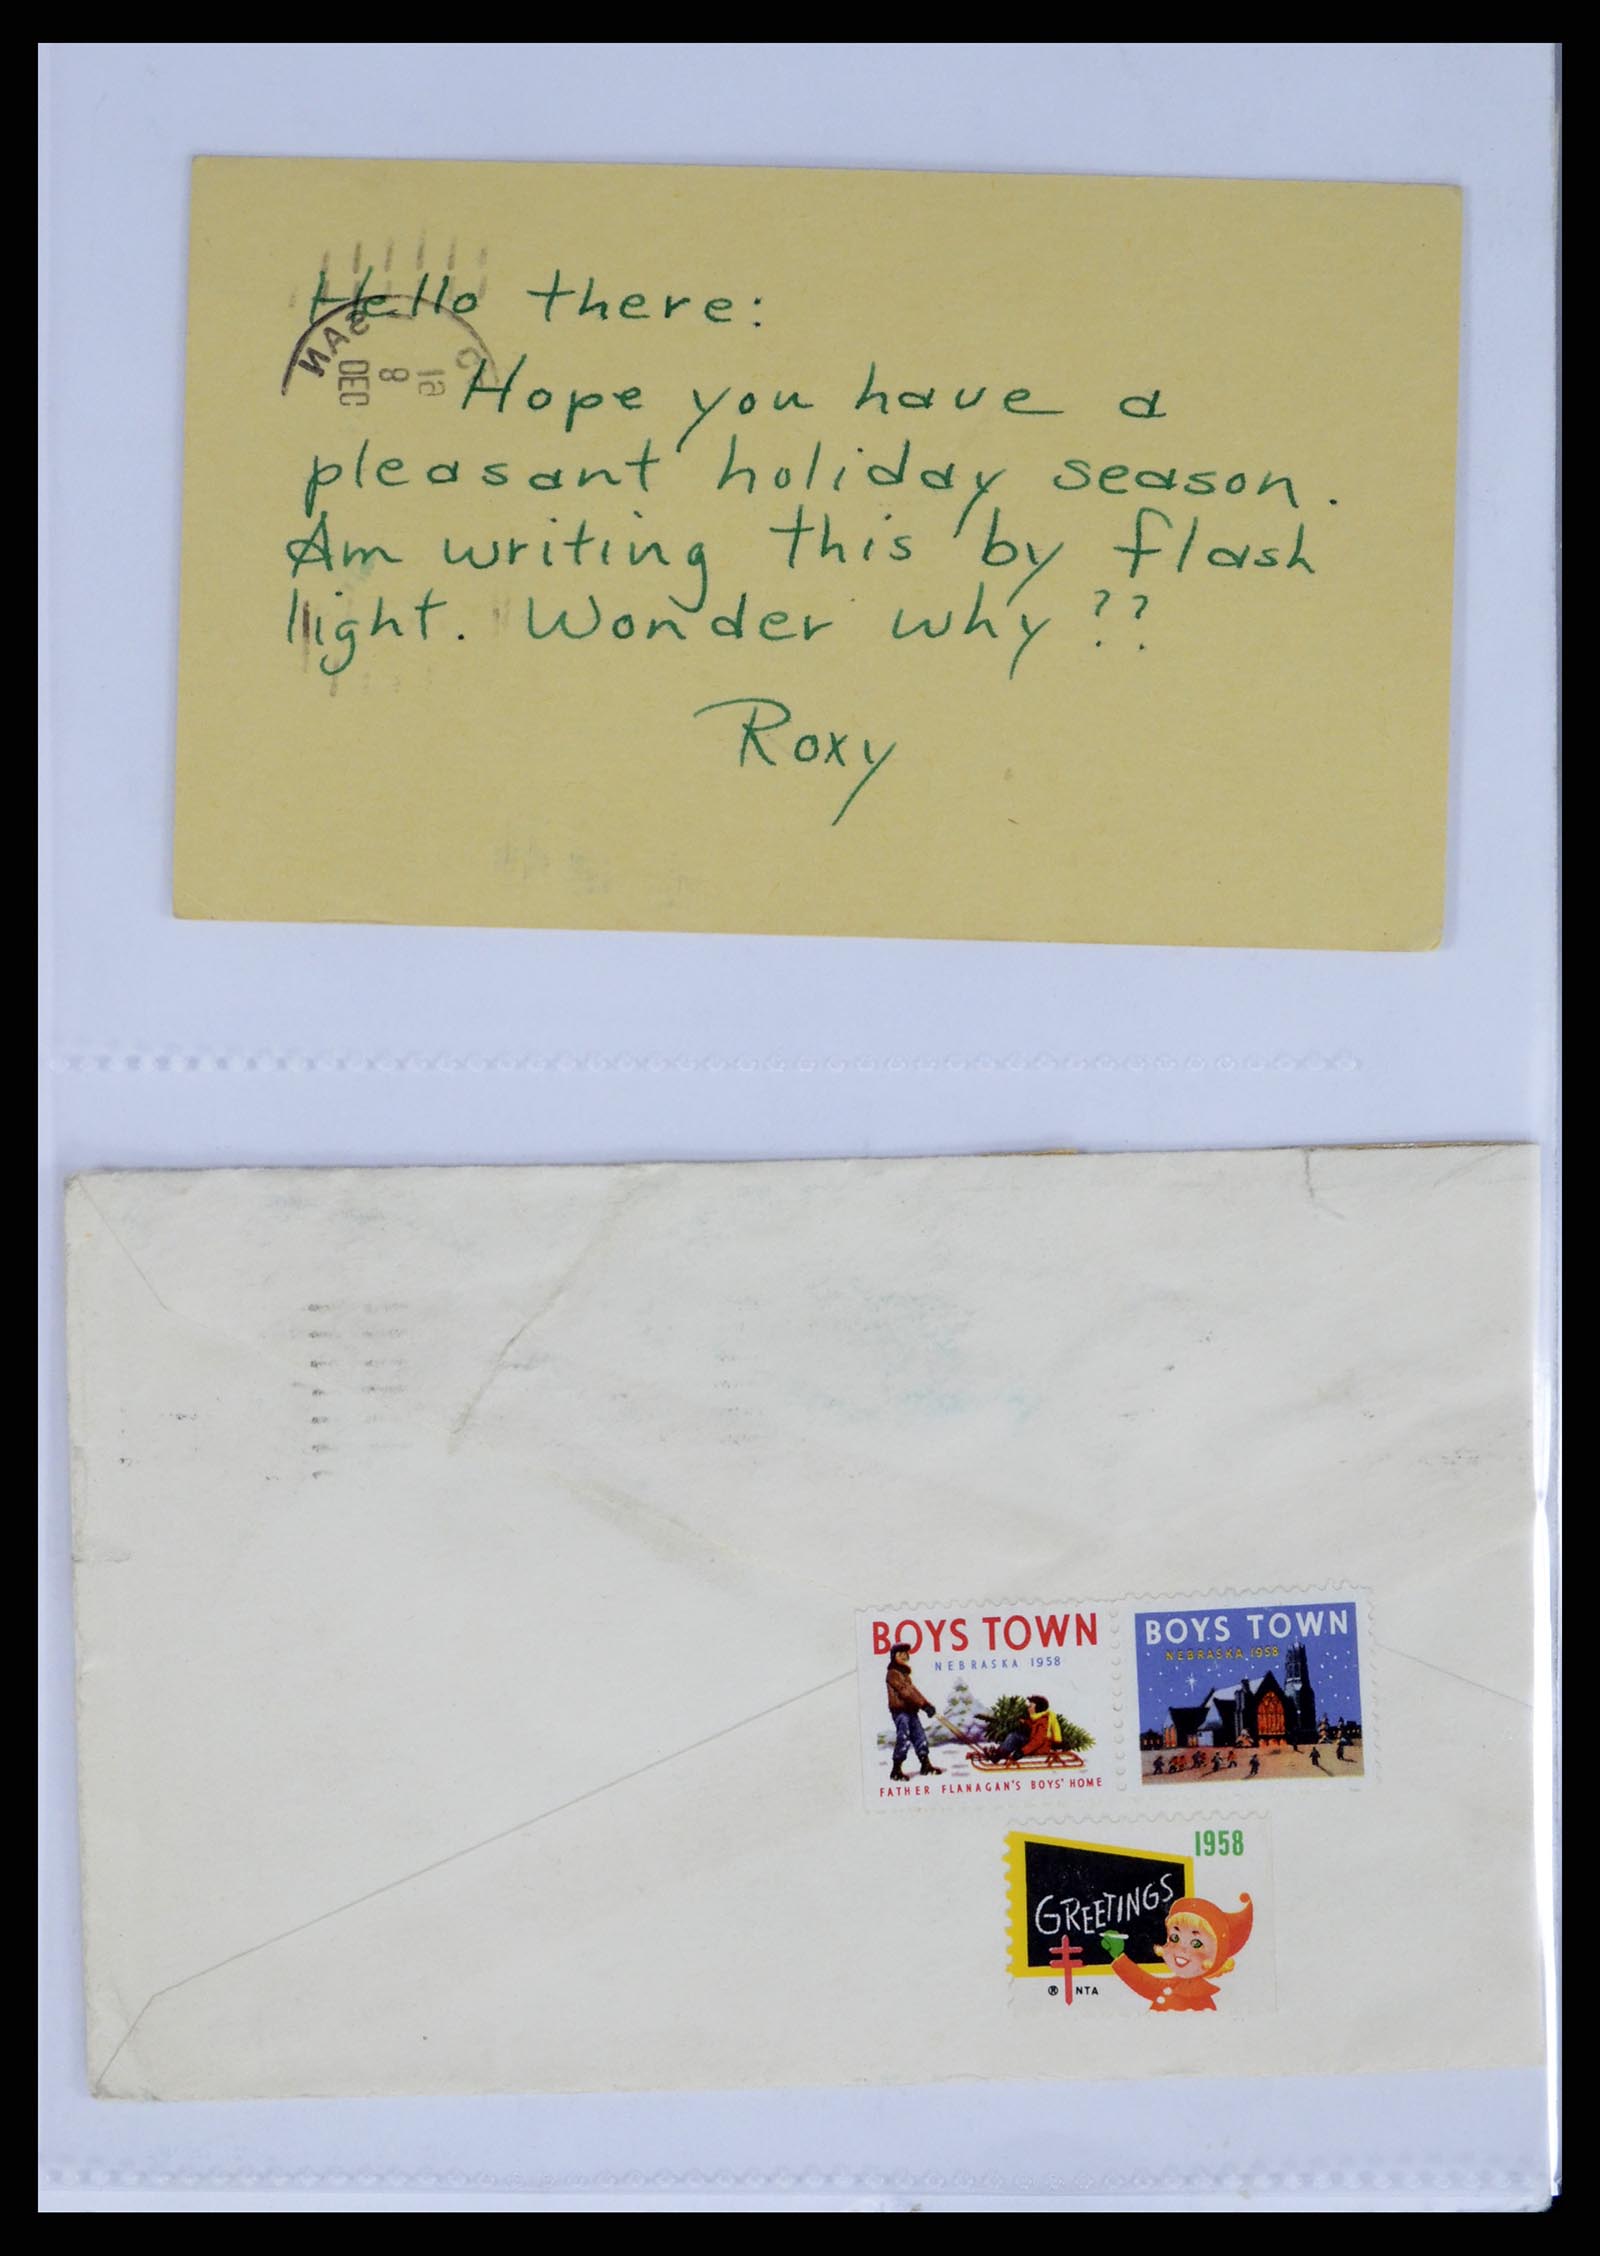 Hello there:
Hope you have a
pleasant holiday season.
Am writing this by flash
light. Wonder why??
Roxy
SAN
DEC
8
BOYS TOWN
NEBRASKA 1958
FATHER FLANAGAN'S BOYS' HOME
BOYS TOWN
NEBRASKA 1958
1958
GREETINGS
® NTA